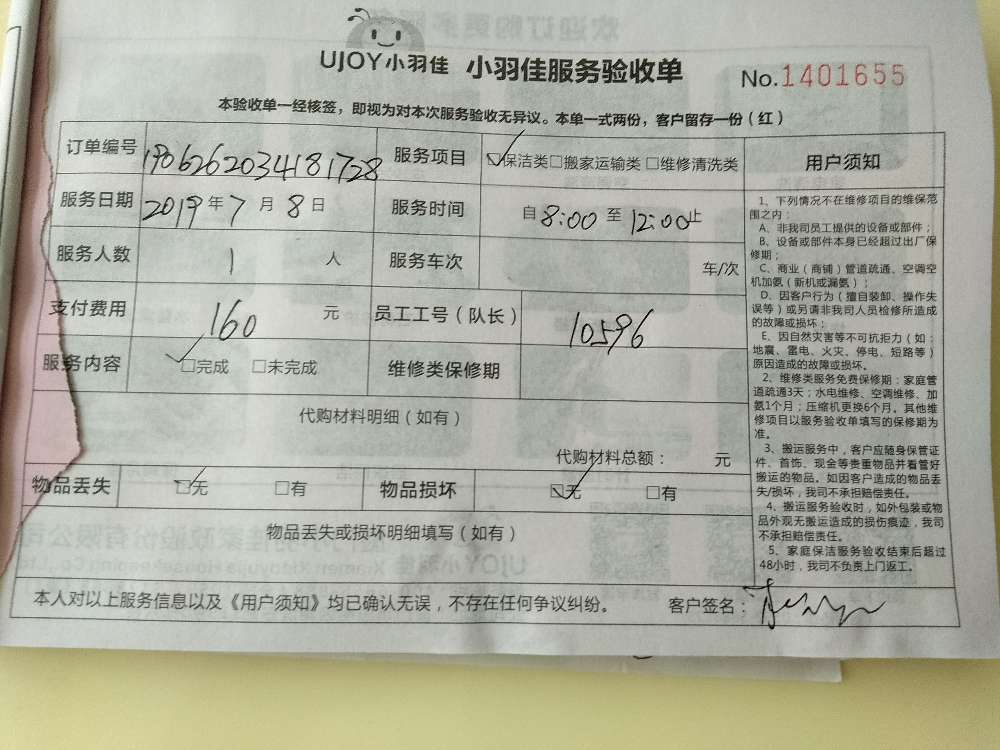 UJOY小羽佳 小羽佳服务验收单 No.1401655
本验收单一经核签，即视为对本次服务验收无异议。本单一式两份，客户留存一份（红）
订单编号 1906262034181728 服务项目 ☑保洁类□搬家运输类□维修清洗类
服务日期 2019年7月8日 服务时间 自8:00至12:00止
服务人数 1 人 服务车次 车/次
支付费用 160 元 员工工号（队长） 10596
服务内容 ☑完成 □未完成 维修类保修期
代购材料明细（如有）
代购材料总额： 元
物品丢失 ☑无 □有 物品损坏 ☑无 □有
物品丢失或损坏明细填写（如有）
本人对以上服务信息以及《用户须知》均已确认无误，不存在任何争议纠纷。 客户签名：
用户须知
1、下列情况不在维修项目的维保范
围之内：
A、非我司员工提供的设备或部件；
B、设备或部件本身已经超过出厂保
修期；
C、商业（商铺）管道疏通、空调空
机加氨（新机或漏氨）；
D、因客户行为（擅自装卸、操作失
误等）或另请非我司人员检修所造成
的故障或损坏；
E、因自然灾害等不可抗拒力（如：
地震、雷电、火灾、停电、短路等）
原因造成的故障或损坏。
2、维修类服务免费保修期：家庭管
道疏通3天；水电维修、空调维修、加
氨1个月；压缩机更换6个月。其他维
修项目以服务验收单填写的保修期为
准。
3、搬运服务中，客户应随身保管证
件、首饰、现金等贵重物品并看管好
搬运的物品。如因客户造成的物品丢
失/损坏，我司不承担赔偿责任。
4、搬运服务验收时，如外包装或物
品外观无搬运造成的损伤痕迹，我司
不承担赔偿责任。
5、家庭保洁服务验收结束后超过
48小时，我司不负责上门返工。